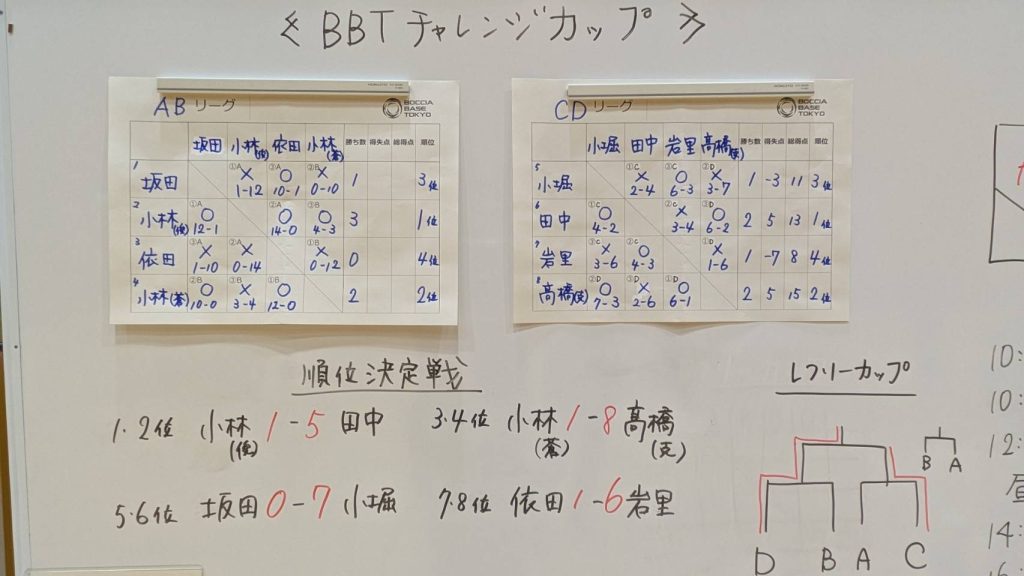 ≪BBTチャレンジカップ≫
ABリーグ
BOCCIA
BASE
TOKYO
坂田 小林(侑) 依田 小林(蒼) 勝ち数 得失点 総得点 順位
1 坂田 ①A × 1-12 ②A ○ 10-1 ②B × 0-10 1 3位
2 小林(侑) ①A ○ 12-1 ②A ○ 14-0 ①B ○ 4-3 3 1位
3 依田 ③A × 1-10 ②A × 0-14 ①B × 0-12 0 4位
4 小林(蒼) ②B ○ 10-0 ③B × 3-4 ①B ○ 12-0 2 2位
CDリーグ
BOCCIA
BASE
TOKYO
小堀 田中 岩里 髙橋(克) 勝ち数 得失点 総得点 順位
5 小堀 ①C × 2-4 ③C ○ 6-3 ②D × 3-7 1 -3 11 3位
6 田中 ①C ○ 4-2 ②C × 3-4 ③D ○ 6-2 2 5 13 1位
7 岩里 ③C × 3-6 ②C ○ 4-3 ①D × 1-6 1 -7 8 4位
8 髙橋(克) ②D ○ 7-3 ③D × 2-6 ①D ○ 6-1 2 5 15 2位
順位決定戦
1・2位 小林(侑) 1-5 田中
3・4位 小林(蒼) 1-8 髙橋(克)
5・6位 坂田 0-7 小堀
7・8位 依田 1-6 岩里
レフリーカップ
B A
D B A C
10:
10:
12:
昼
14: